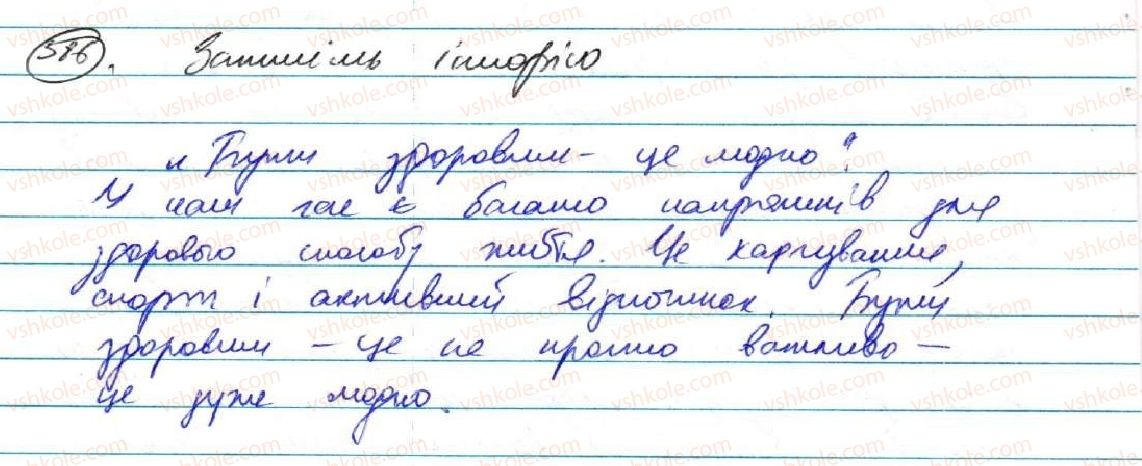 586.
"Бути здоровим - це модно".
У наш час є багато напрямків для
здорового способу життя. Це харчування,
спорт і активний відпочинок. Бути
здоровим - це не просто важливо -
це дуже модно.
vshkole.com